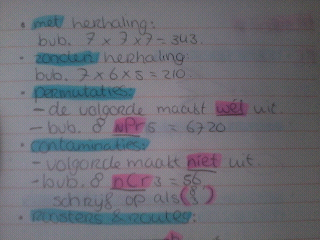 • met herhaling:
bub. 7 x 7 x 7 = 343.
• zonder herhaling
bub. 7 x 6 x 5 = 210.
• permutaties:
- de volgorde maakt wél uit
- bub. 8 nPr 5 = 6720
• contaminaties:
- volgorde maakt niet uit.
- bub. 8 nCr 3 = 56
schrijf op als (8 3)
• roosters & routes: